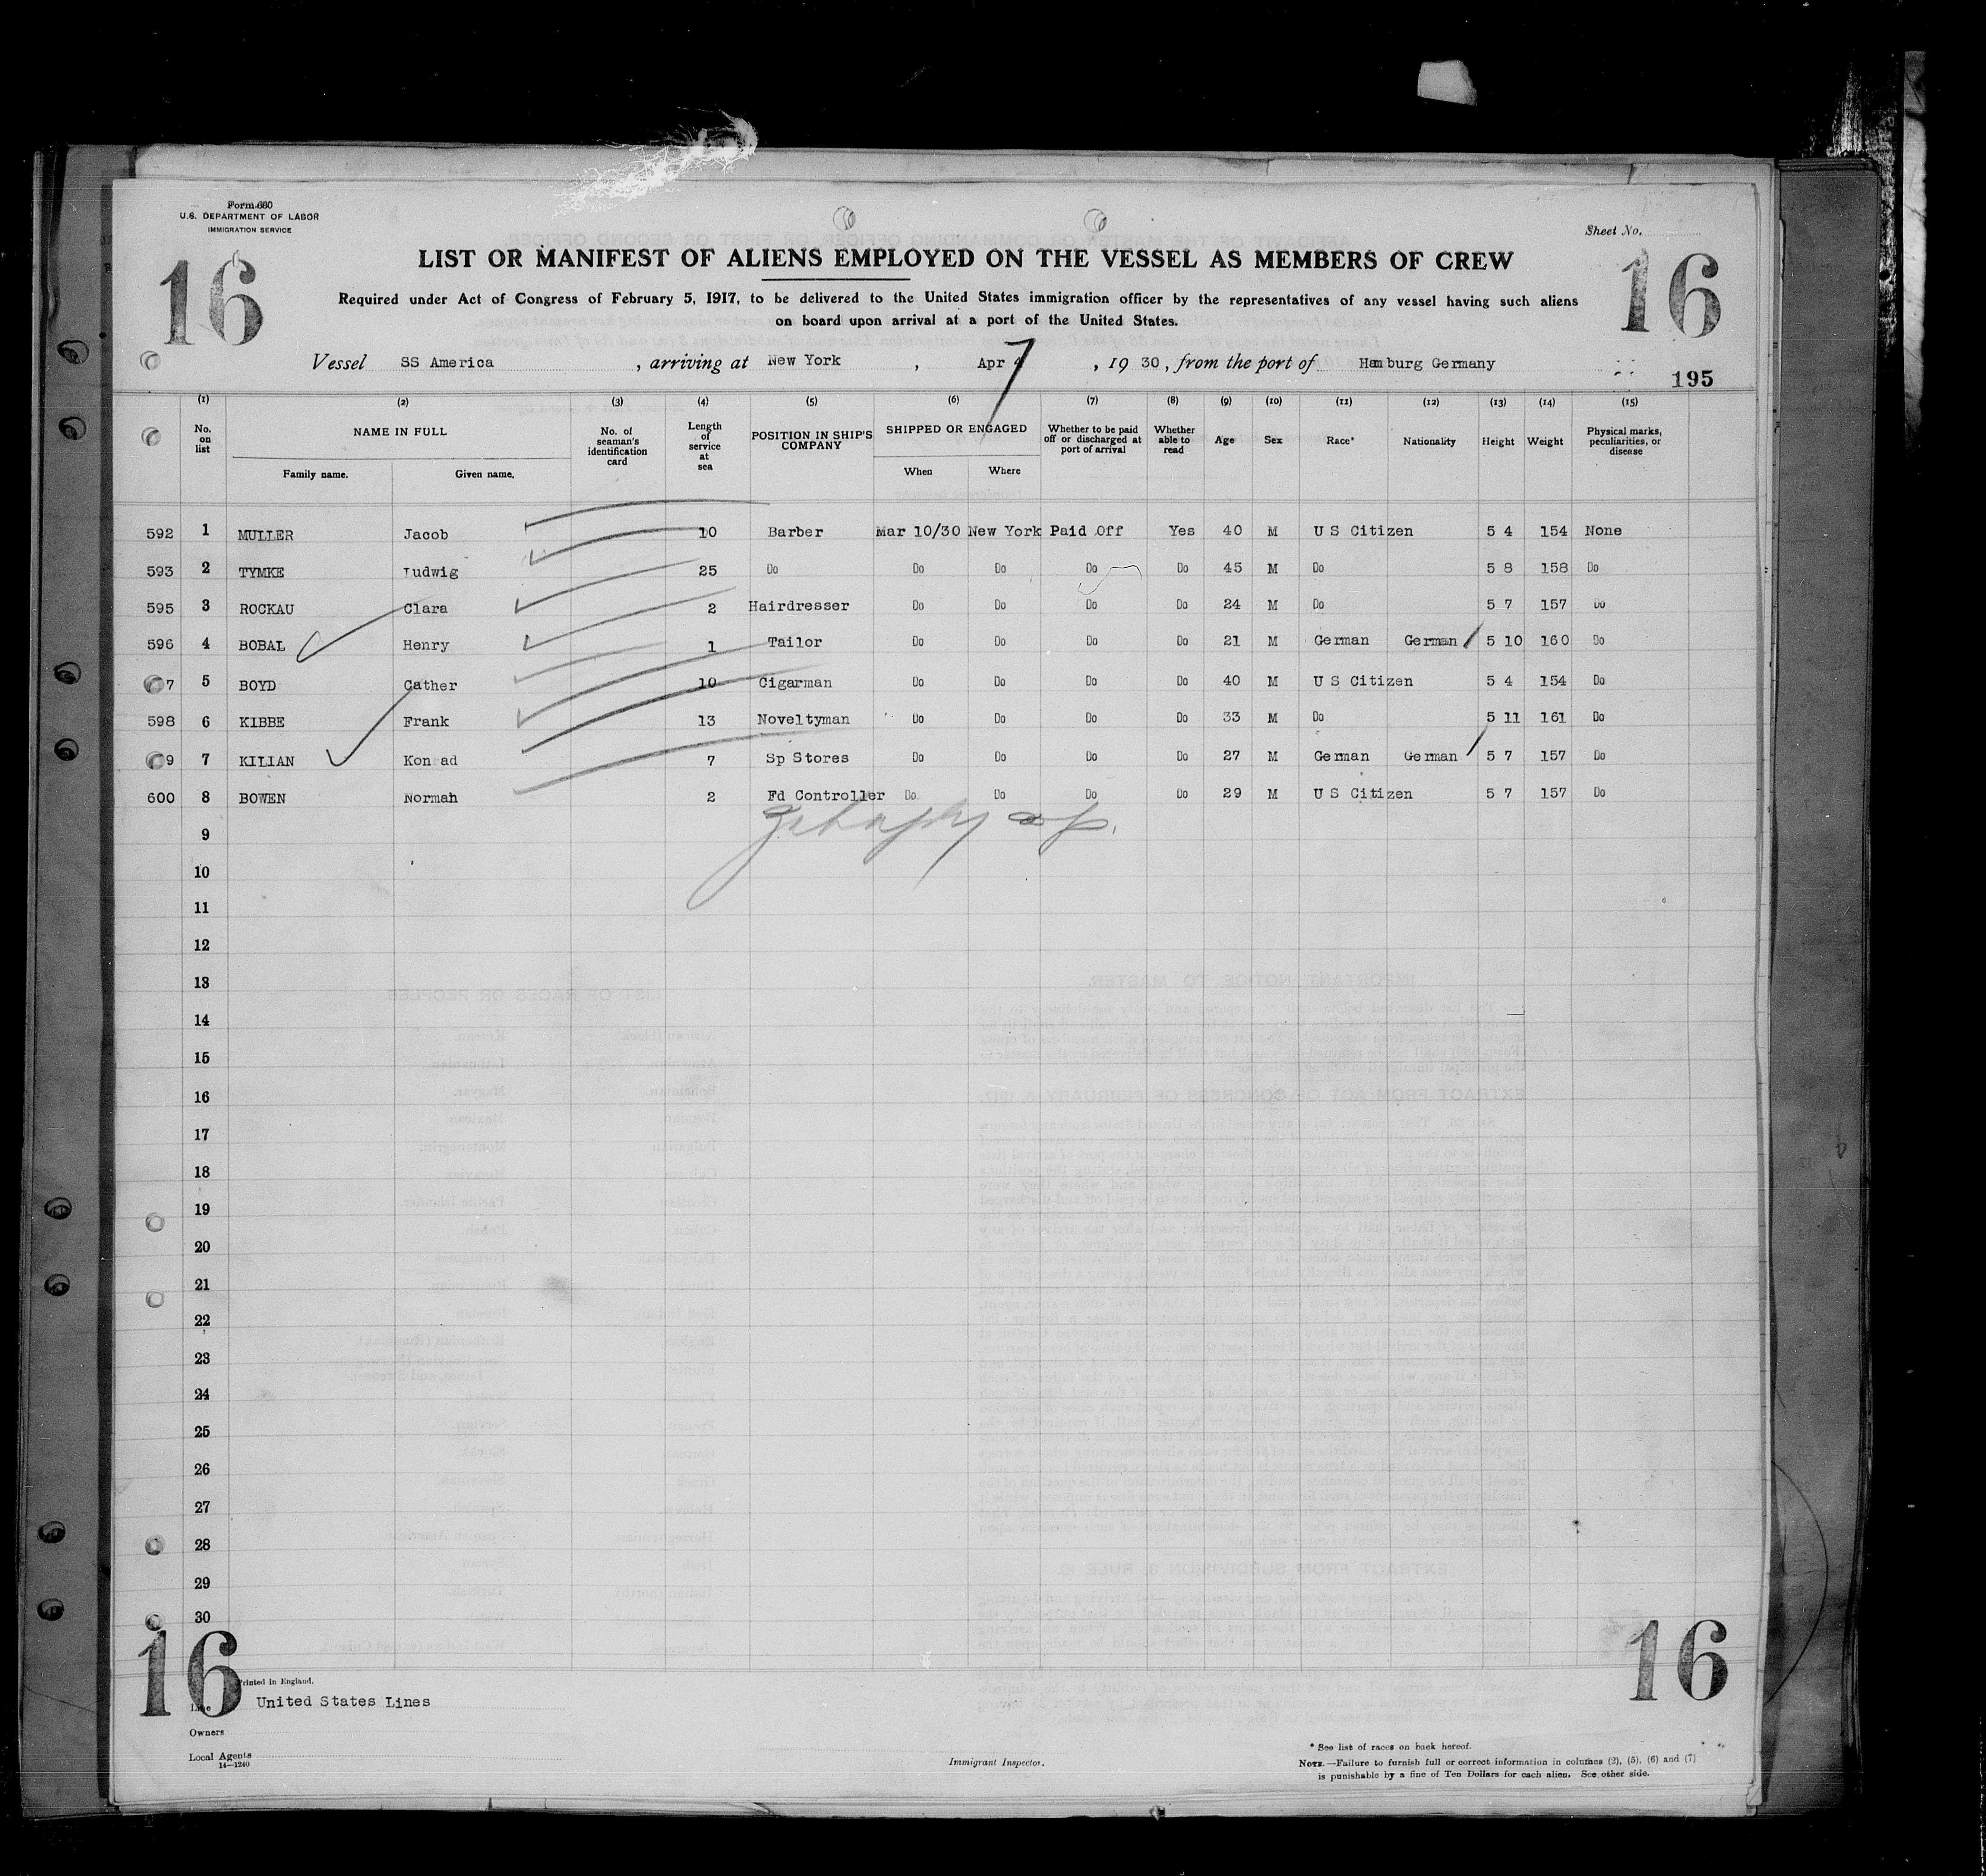 Form 680
U.S. DEPARTMENT OF LABOR
IMMIGRATION SERVICE
Sheet No.
16 16
LIST OR MANIFEST OF ALIENS EMPLOYED ON THE VESSEL AS MEMBERS OF CREW
Required under Act of Congress of February 5, 1917, to be delivered to the United States immigration officer by the representatives of any vessel having such aliens
on board upon arrival at a port of the United States.
Vessel SS America , arriving at New York , Apr 7 , 19 30, from the port of Hamburg Germany
195
(1) (2) (3) (4) (5) (6) (7) (8) (9) (10) (11) (12) (13) (14) (15)
No. on list NAME IN FULL No. of seaman's identification card Length of service at sea POSITION IN SHIP'S COMPANY SHIPPED OR ENGAGED Whether to be paid off or discharged at port of arrival Whether able to read Age Sex Race* Nationality Height Weight Physical marks, peculiarities, or disease
Family name. Given name. When Where
592 1 MULLER Jacob 10 Barber Mar 10/30 New York Paid Off Yes 40 M U S Citizen 5 4 154 None
593 2 TYMKE Ludwig 25 Do Do Do Do Do 45 M Do 5 8 158 Do
595 3 ROCKAU Clara 2 Hairdresser Do Do Do Do 24 M Do 5 7 157 Do
596 4 BOBAL Henry 1 Tailor Do Do Do Do 21 M German German 5 10 160 Do
7 5 BOYD Cather 10 Cigarman Do Do Do Do 40 M U S Citizen 5 4 154 Do
598 6 KIBBE Frank 13 Noveltyman Do Do Do Do 33 M Do 5 11 161 Do
9 7 KILIAN Kon ad 7 Sp Stores Do Do Do Do 27 M German German 5 7 157 Do
600 8 BOWEN Norman 2 Fd Controller Do Do Do Do 29 M U S Citizen 5 7 157 Do
9
10
11
12
13
14
15
16
17
18
19
20
21
22
23
24
25
26
27
28
29
30
16 16
Printed in England.
Line United States Lines
Owners
Local Agents
14—1240
Immigrant Inspector.
* See list of races on back hereof.
NOTE.—Failure to furnish full or correct information in columns (2), (5), (6) and (7)
is punishable by a fine of Ten Dollars for each alien. See other side.